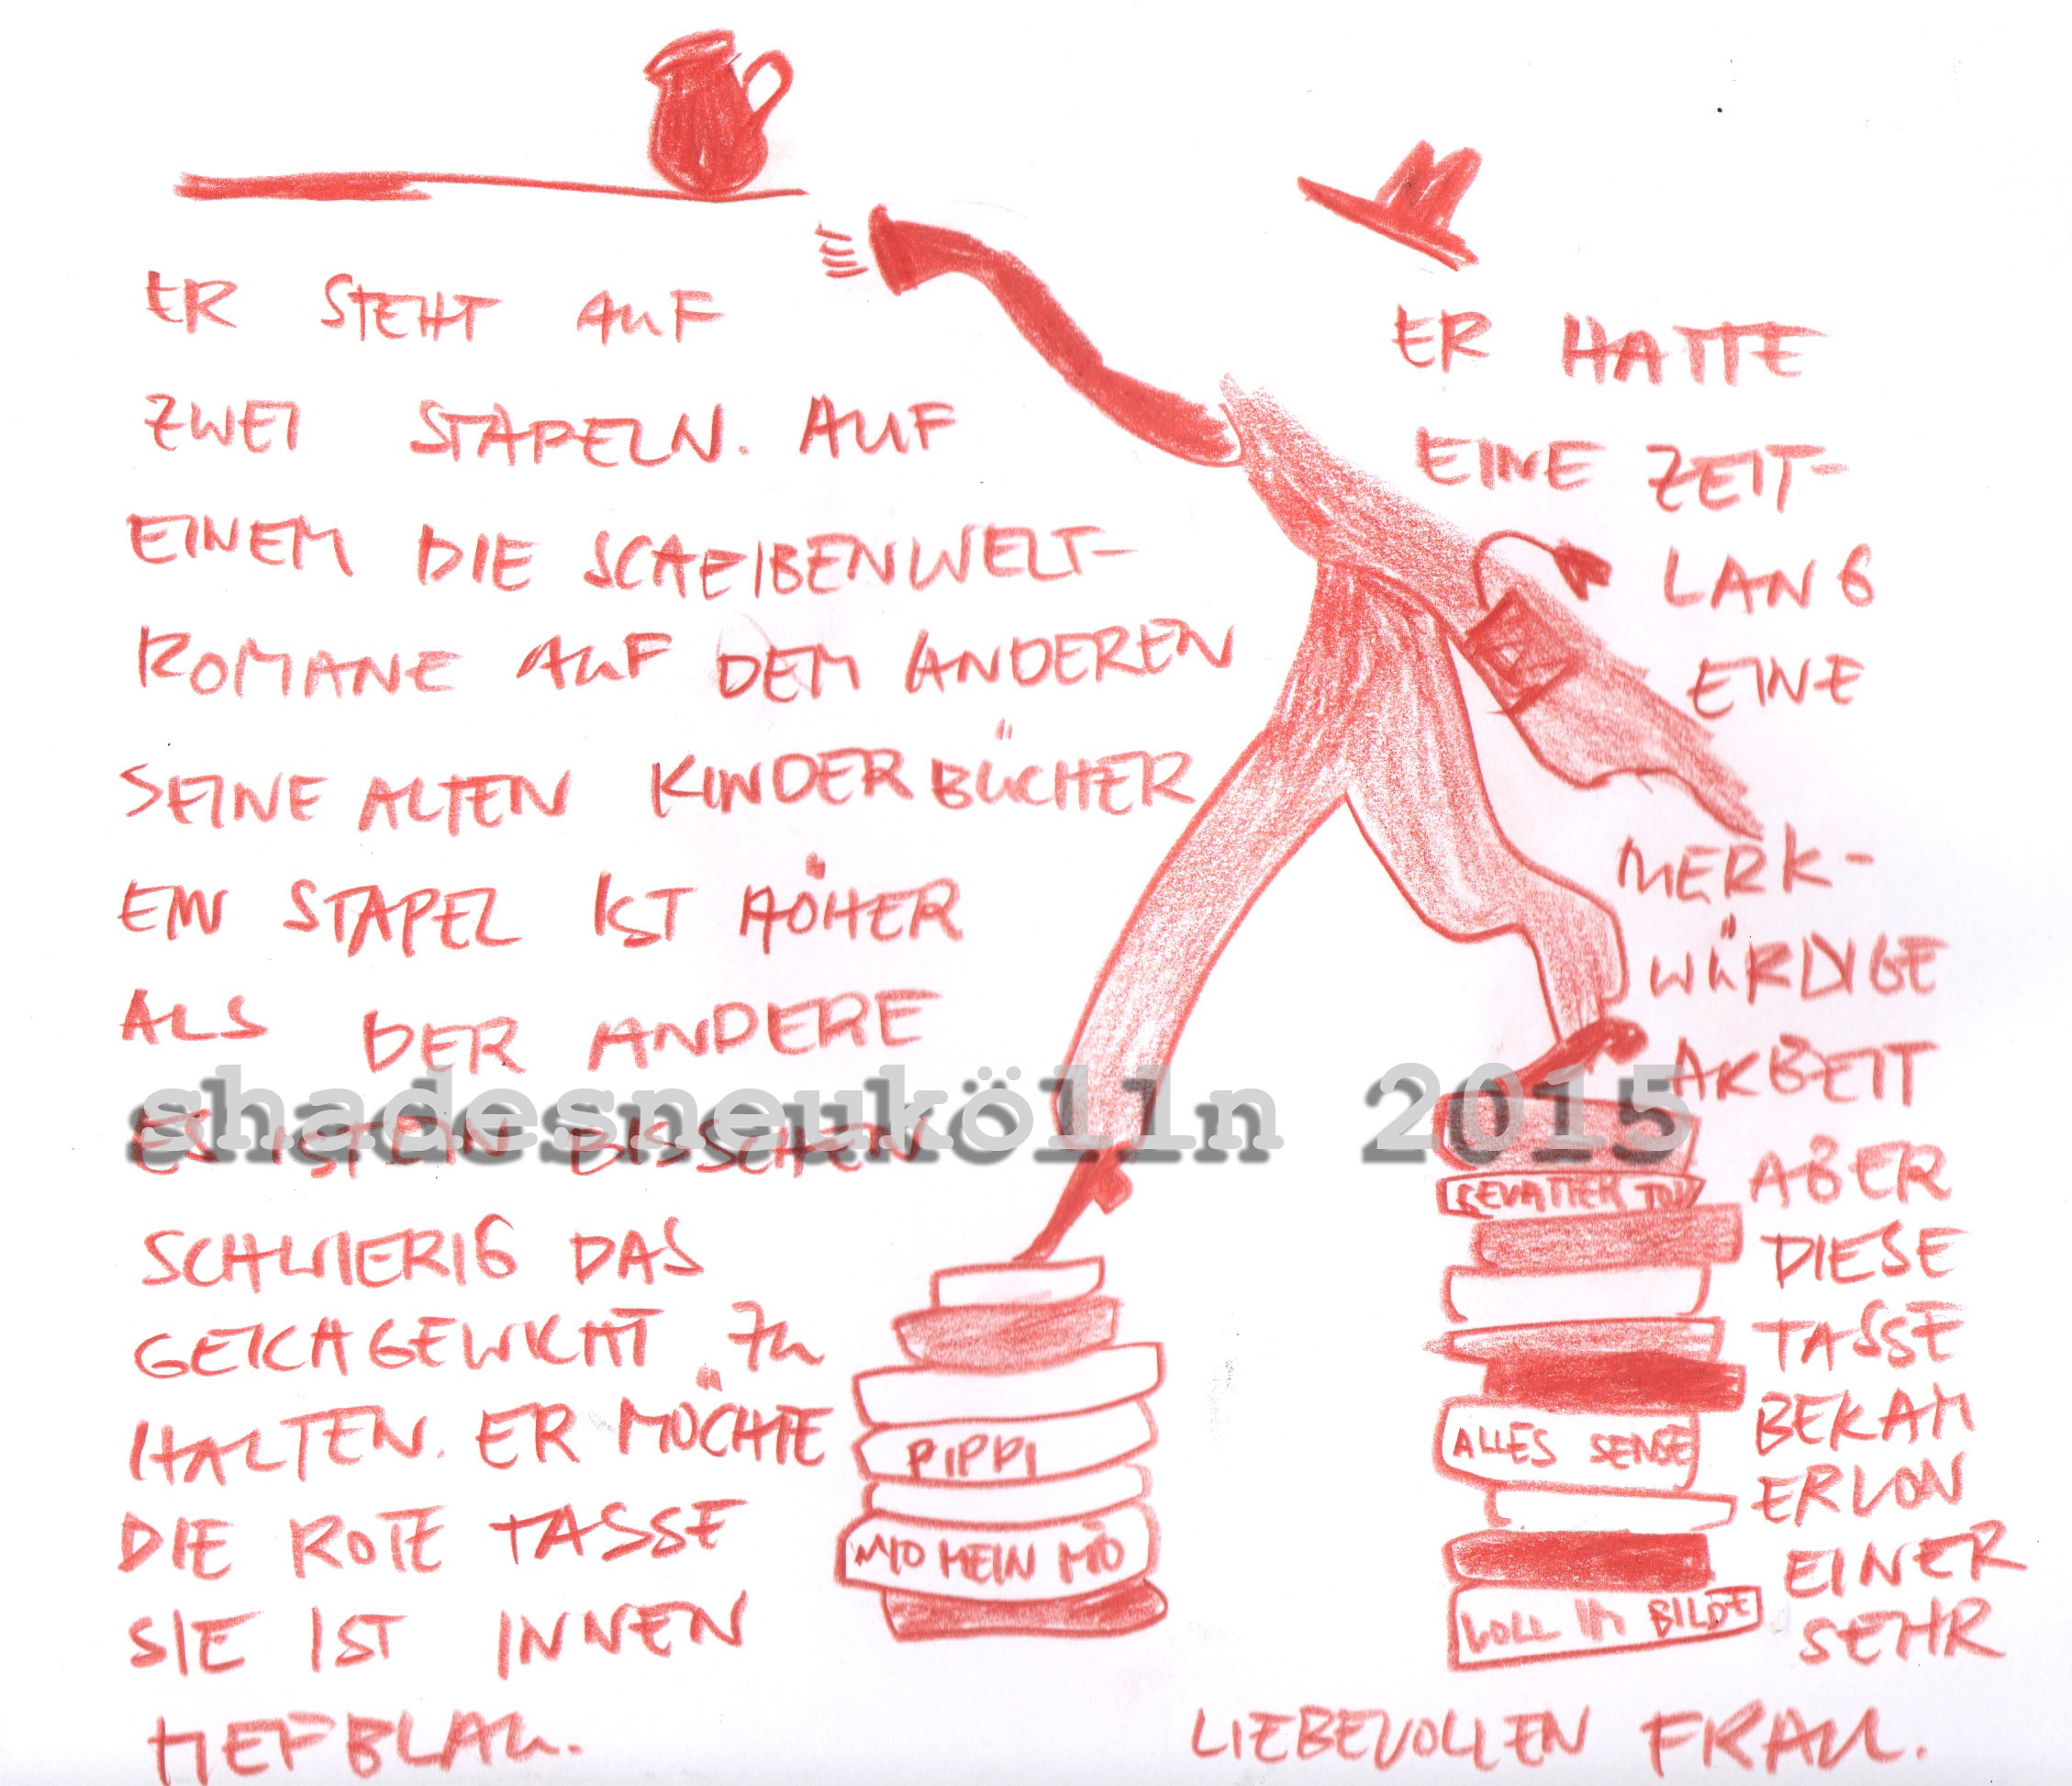 ER STEHT AUF
ZWEI STAPELN. AUF
EINEM DIE SCHEIBENWELT-
ROMANE AUF DEM ANDEREN
SEINE ALTEN KINDERBÜCHER
EIN STAPEL IST HÖHER
ALS DER ANDERE
ES IST EIN BISSCHEN
SCHWIERIG DAS
GEICHGEWICHT ZU
HALTEN. ER MÖCHTE
DIE ROTE TASSE
SIE IST INNEN
TIEFBLAU.
ER HATTE
EINE ZEIT-
LANG
EINE
MERK-
WÜRDIGE
ARBEIT
ABER
DIESE
TASSE
BEKAM
ER VON
EINER
SEHR
LIEBEVOLLEN FRAU.
PIPPI
MIO MEIN MIO
GEVATTER TOD
ALLES SENSE
VOLL IM BILDE
shadesneukölln 2015